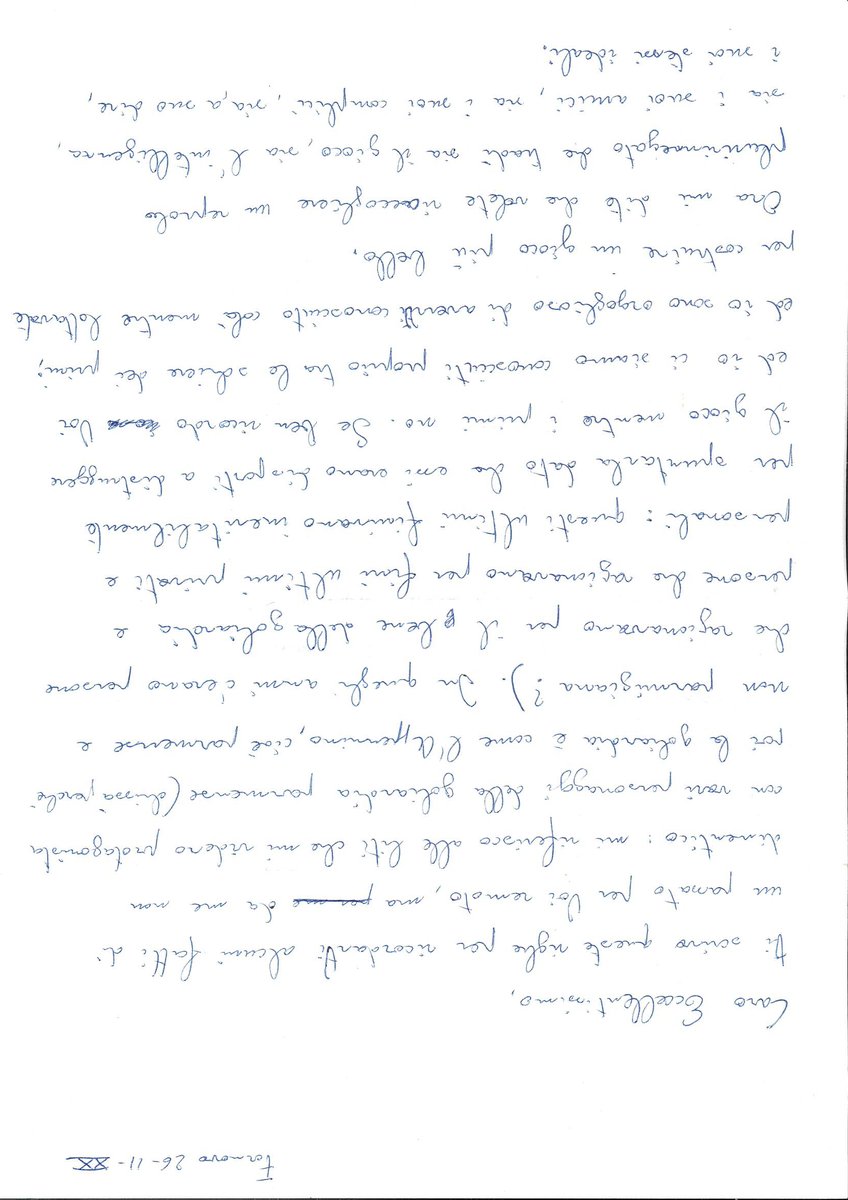 Fornovo 26-11-XX
Caro Eccellentissimo,
ti scrivo queste righe per ricordarti alcuni fatti di
un passato per Voi remoto, ma da me non
dimentico: mi riferisco alle liti che mi videro protagonista
con vari personaggi della goliardia parmense (chissà perché
poi la goliardia è come l'Appennino, cioè parmense e
non parmigiana?). In quegli anni c'erano persone
che ragionavano per il bene della goliardia e
persone che ragionavano per fini ultimi privati e
personali: questi ultimi finivano inevitabilmente
per spuntarla dato che essi erano disposti a distruggere
il gioco, mentre i primi no. Se ben ricordo Voi
ed io ci siamo conosciuti proprio tra le schiere dei primi;
ed io sono orgoglioso di averti conosciuto colà mentre lottavate
per costruire un gioco più bello.
Ora mi dite che volete riaccogliere un reprobo
pluririnnegato che tradì sia il gioco, sia l'intelligenza,
sia i suoi amici, sia i suoi complici, sia, a suo dire,
i suoi stessi ideali.